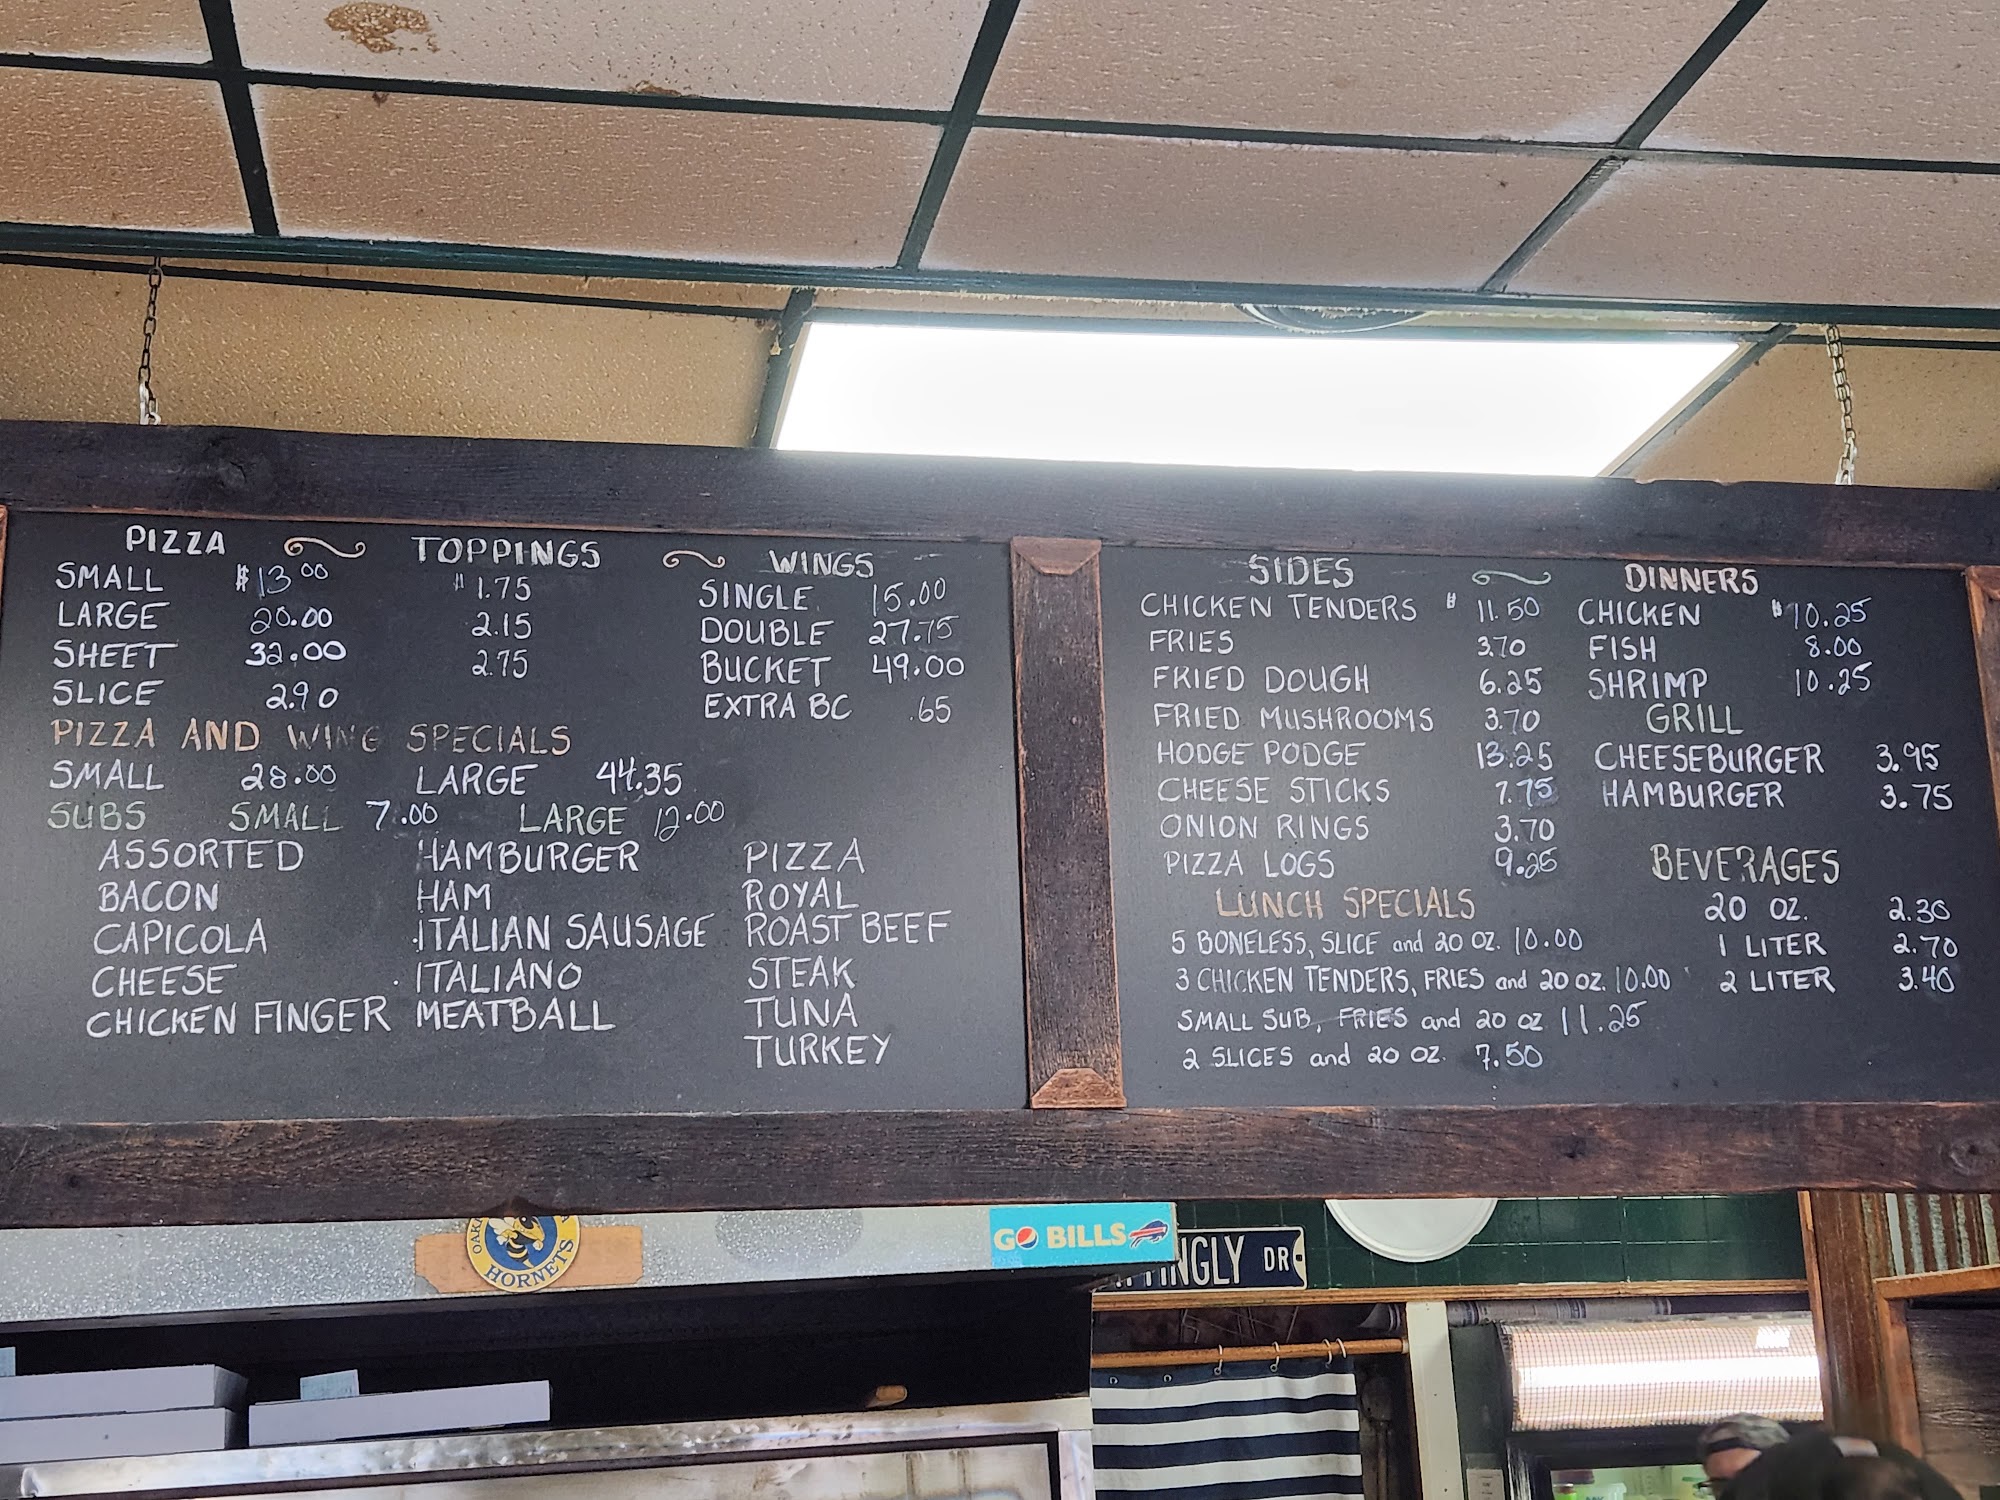 PIZZA TOPPINGS WINGS
SMALL $13.00 $1.75
LARGE 20.00 2.15
SHEET 32.00 2.75
SLICE 2.90
SINGLE 15.00
DOUBLE 27.75
BUCKET 49.00
EXTRA BC .65
PIZZA AND WING SPECIALS
SMALL 28.00 LARGE 44.35
SUBS SMALL 7.00 LARGE 12.00
ASSORTED
BACON
CAPICOLA
CHEESE
CHICKEN FINGER
HAMBURGER
HAM
ITALIAN SAUSAGE
ITALIANO
MEATBALL
PIZZA
ROYAL
ROAST BEEF
STEAK
TUNA
TURKEY
SIDES
CHICKEN TENDERS $11.50
FRIES 3.70
FRIED DOUGH 6.25
FRIED MUSHROOMS 3.70
HODGE PODGE 13.25
CHEESE STICKS 7.75
ONION RINGS 3.70
PIZZA LOGS 9.25
LUNCH SPECIALS
5 BONELESS, SLICE and 20 OZ. 10.00
3 CHICKEN TENDERS, FRIES and 20 OZ. 10.00
SMALL SUB, FRIES and 20 OZ 11.25
2 SLICES and 20 OZ. 7.50
DINNERS
CHICKEN $10.25
FISH 8.00
SHRIMP 10.25
GRILL
CHEESEBURGER 3.95
HAMBURGER 3.75
BEVERAGES
20 OZ. 2.30
1 LITER 2.70
2 LITER 3.40
HORNETS
GO BILLS
DR